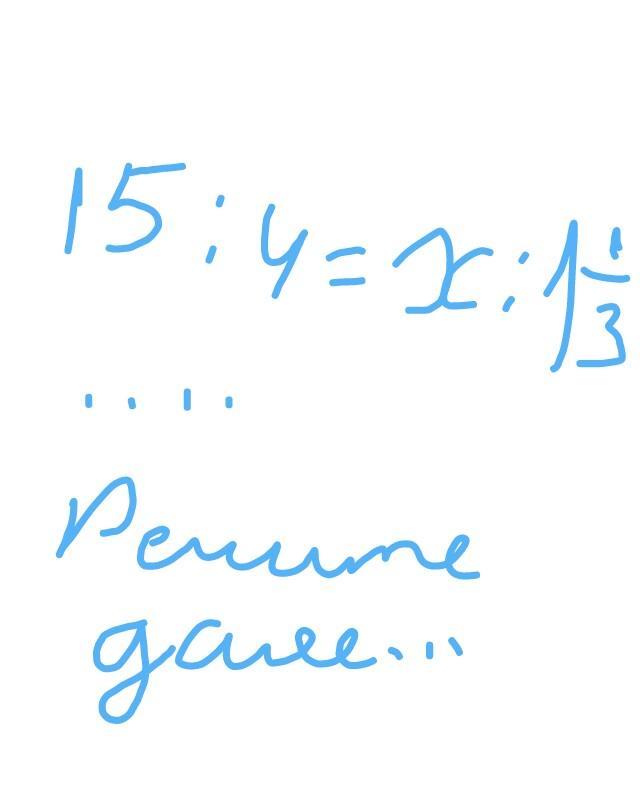 15 : 4 = x : 1 1/3
....
Решите
далее...